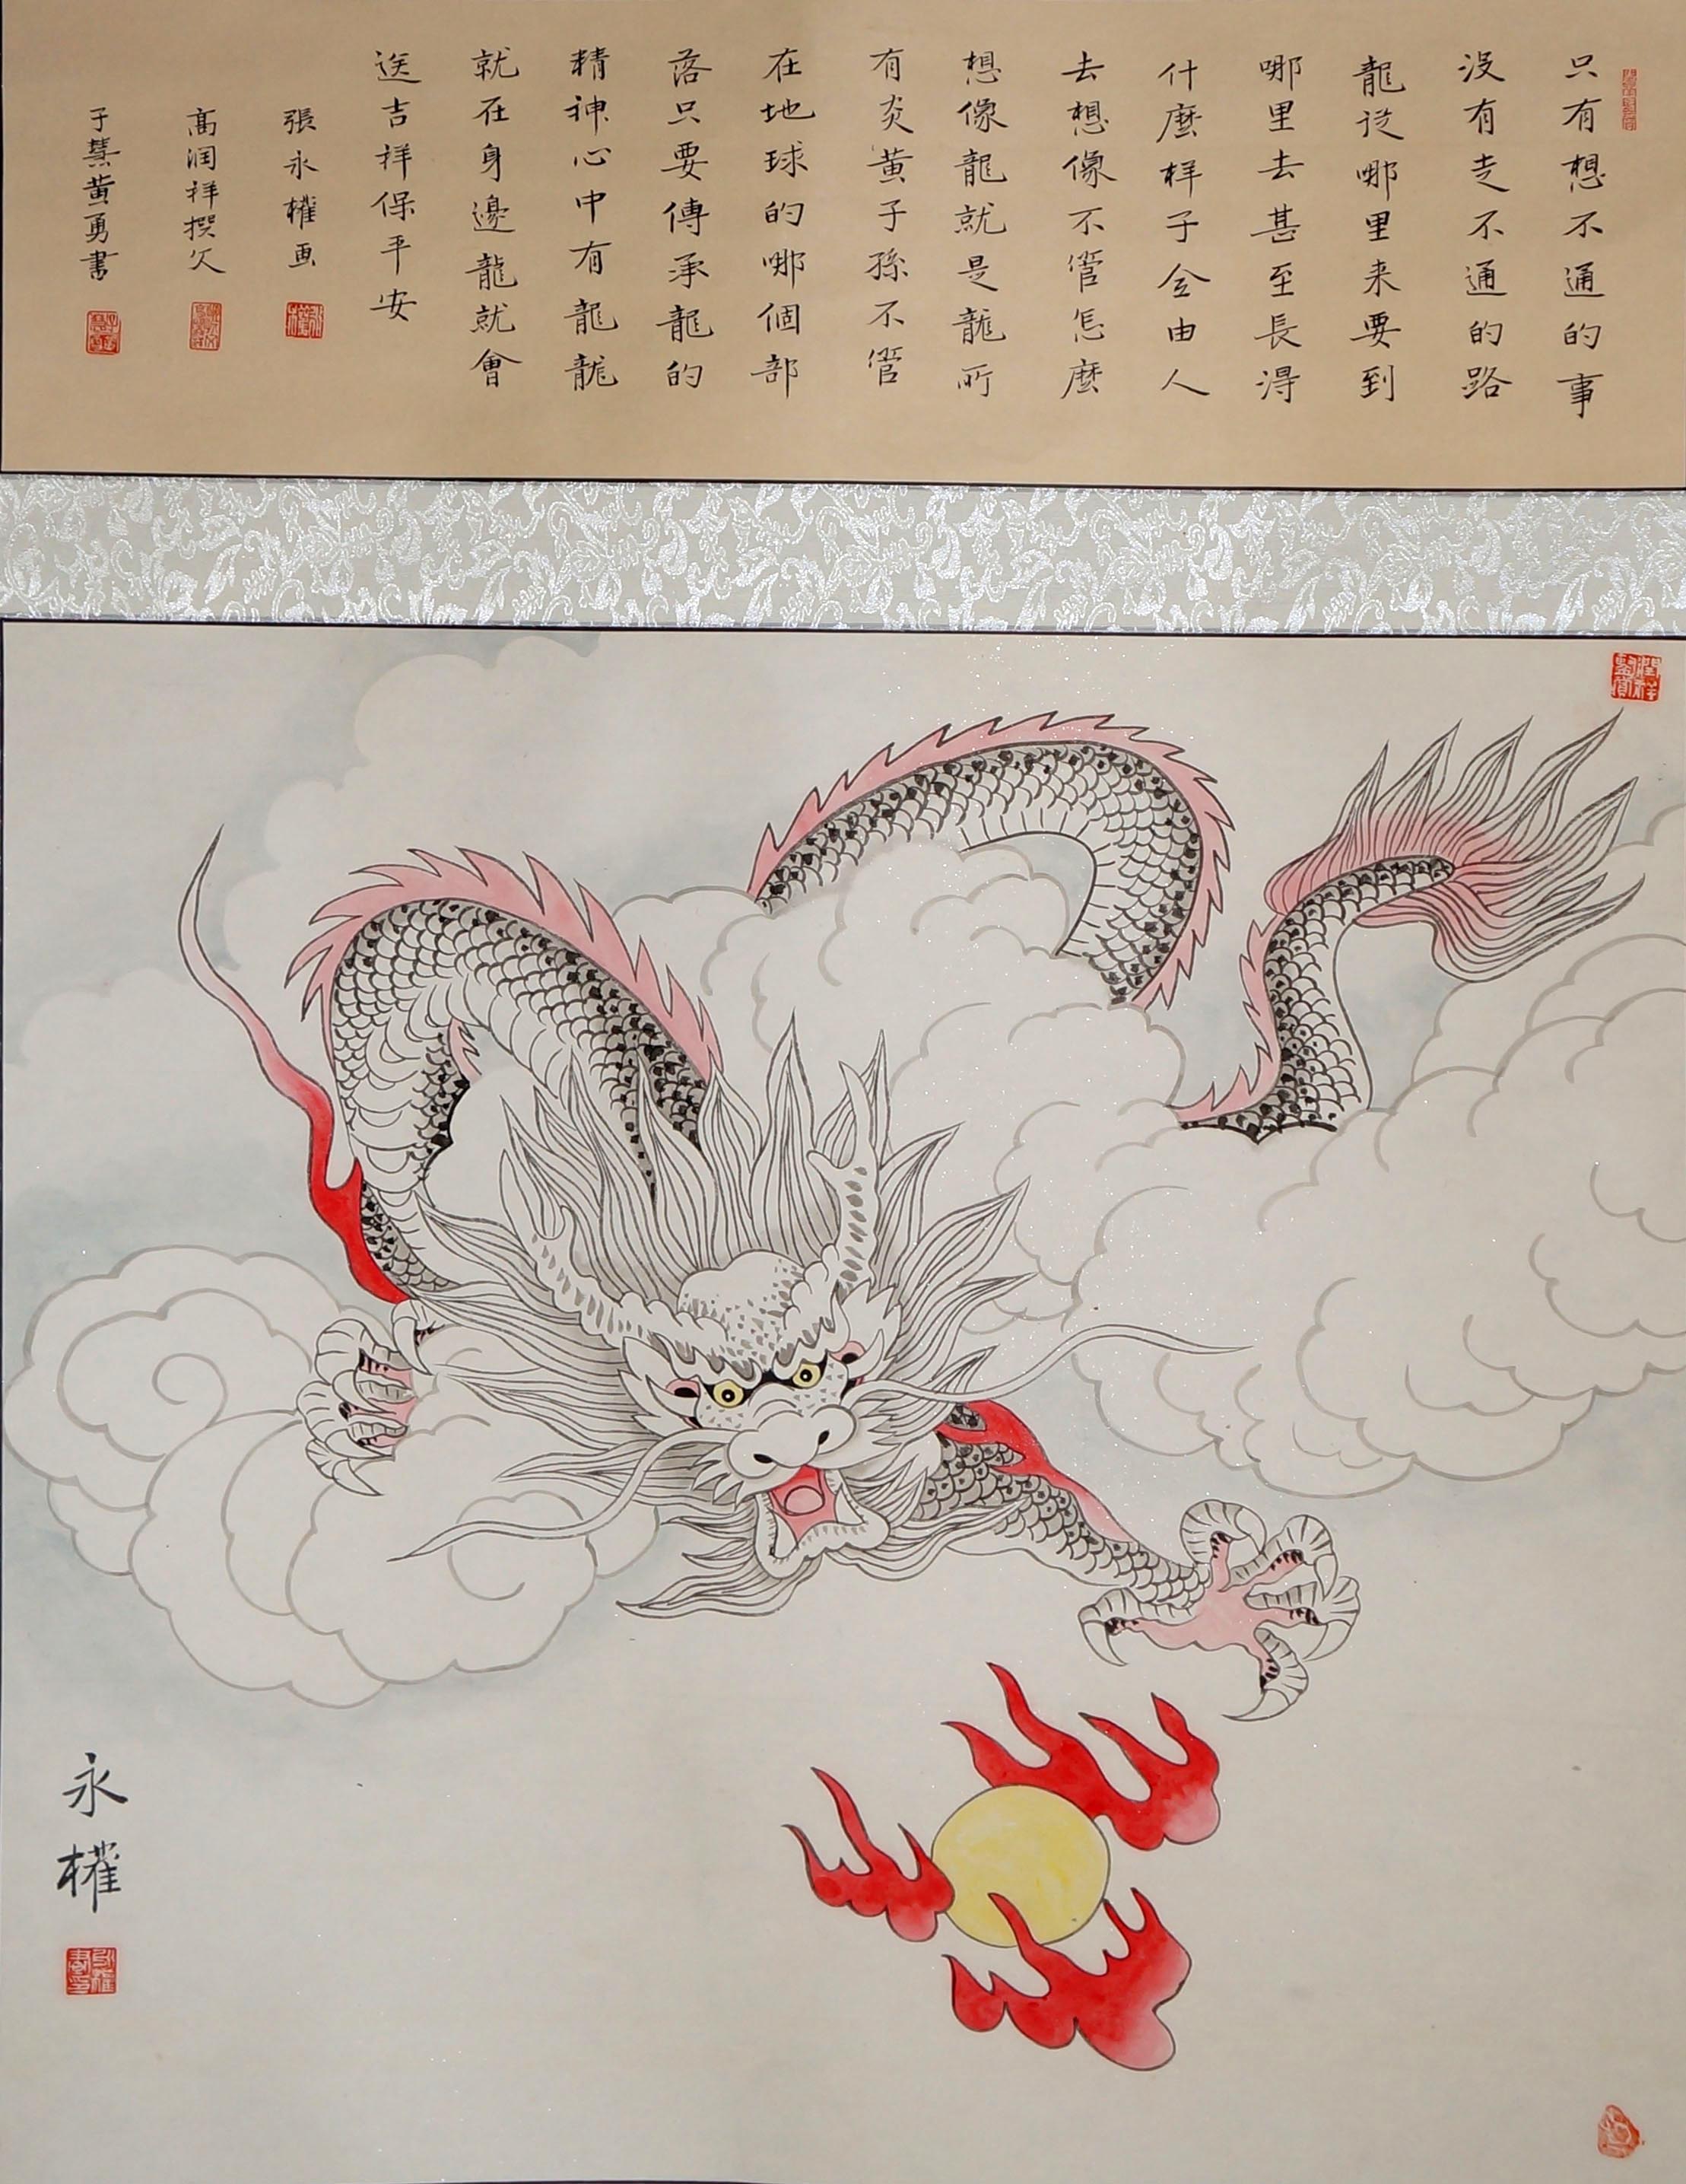 只有想不通的事
没有走不通的路
龍從哪里来要到
哪里去甚至長得
什麼样子全由人
去想像不管怎麼
想像龍就是龍所
有炎黄子孫不管
在地球的哪個部
落只要傳承龍的
精神心中有龍龍
就在身邊龍就會
送吉祥保平安
張永權画
高润祥撰文
子慧黄勇書
永權